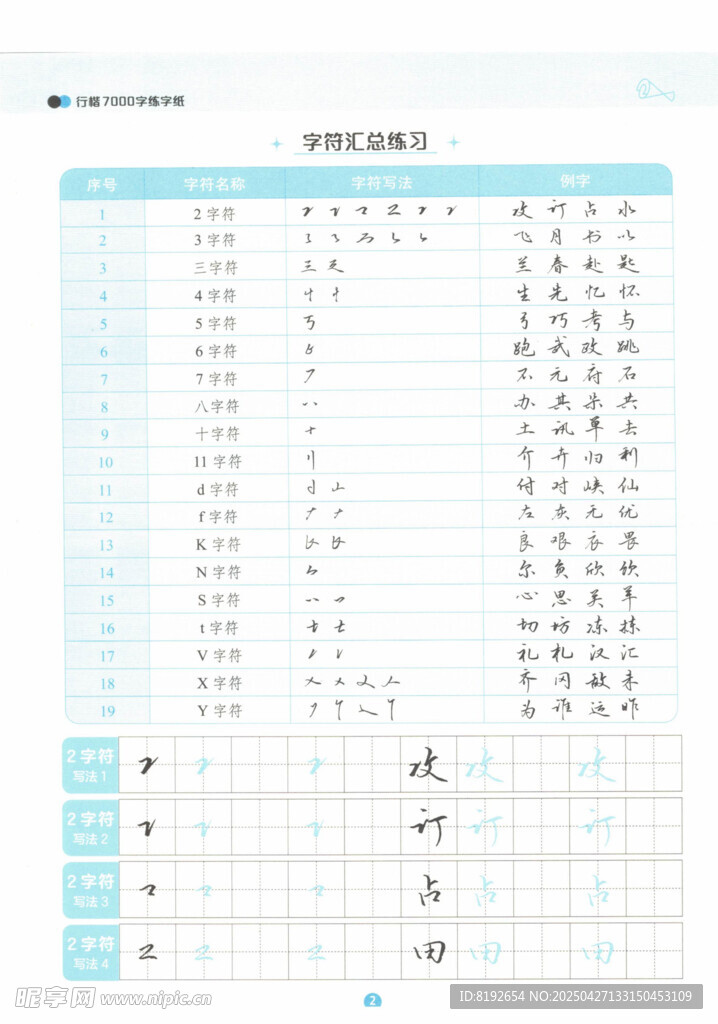 行楷7000字练字纸
字符汇总练习
序号 字符名称 字符写法 例字
1 2字符 攻 订 占 水
2 3字符 飞 月 书 以
3 三字符 兰 春 赴 匙
4 4字符 生 先 忆 怀
5 5字符 弓 巧 考 与
6 6字符 跑 武 政 跳
7 7字符 不 元 府 石
8 八字符 办 其 朵 共
9 十字符 土 讯 单 去
10 11字符 介 卉 归 利
11 d字符 付 对 峡 仙
12 f字符 左 灰 无 优
13 K字符 良 艰 衣 畏
14 N字符 尔 负 欣 饮
15 S字符 心 思 美 羊
16 t字符 切 坊 冻 拣
17 V字符 礼 札 汉 汇
18 X字符 齐 冈 敌 未
19 Y字符 为 谁 运 昨
2字符 攻 攻 攻
写法1
2字符 订 订 订
写法2
2字符 占 占 占
写法3
2字符 田 田 田
写法4
2
昵享网 www.nipic.cn
ID:8192654 NO:20250427133150453109